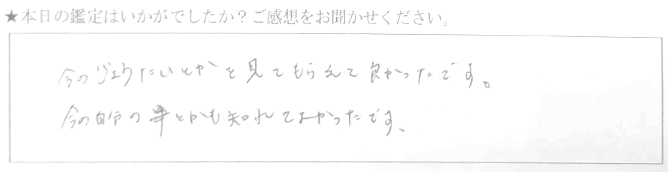 ★本日の鑑定はいかがでしたか？ご感想をお聞かせください。
今のじょうたいとかを見てもらえて良かったです。
今の自分の事とかも知れてよかったです、